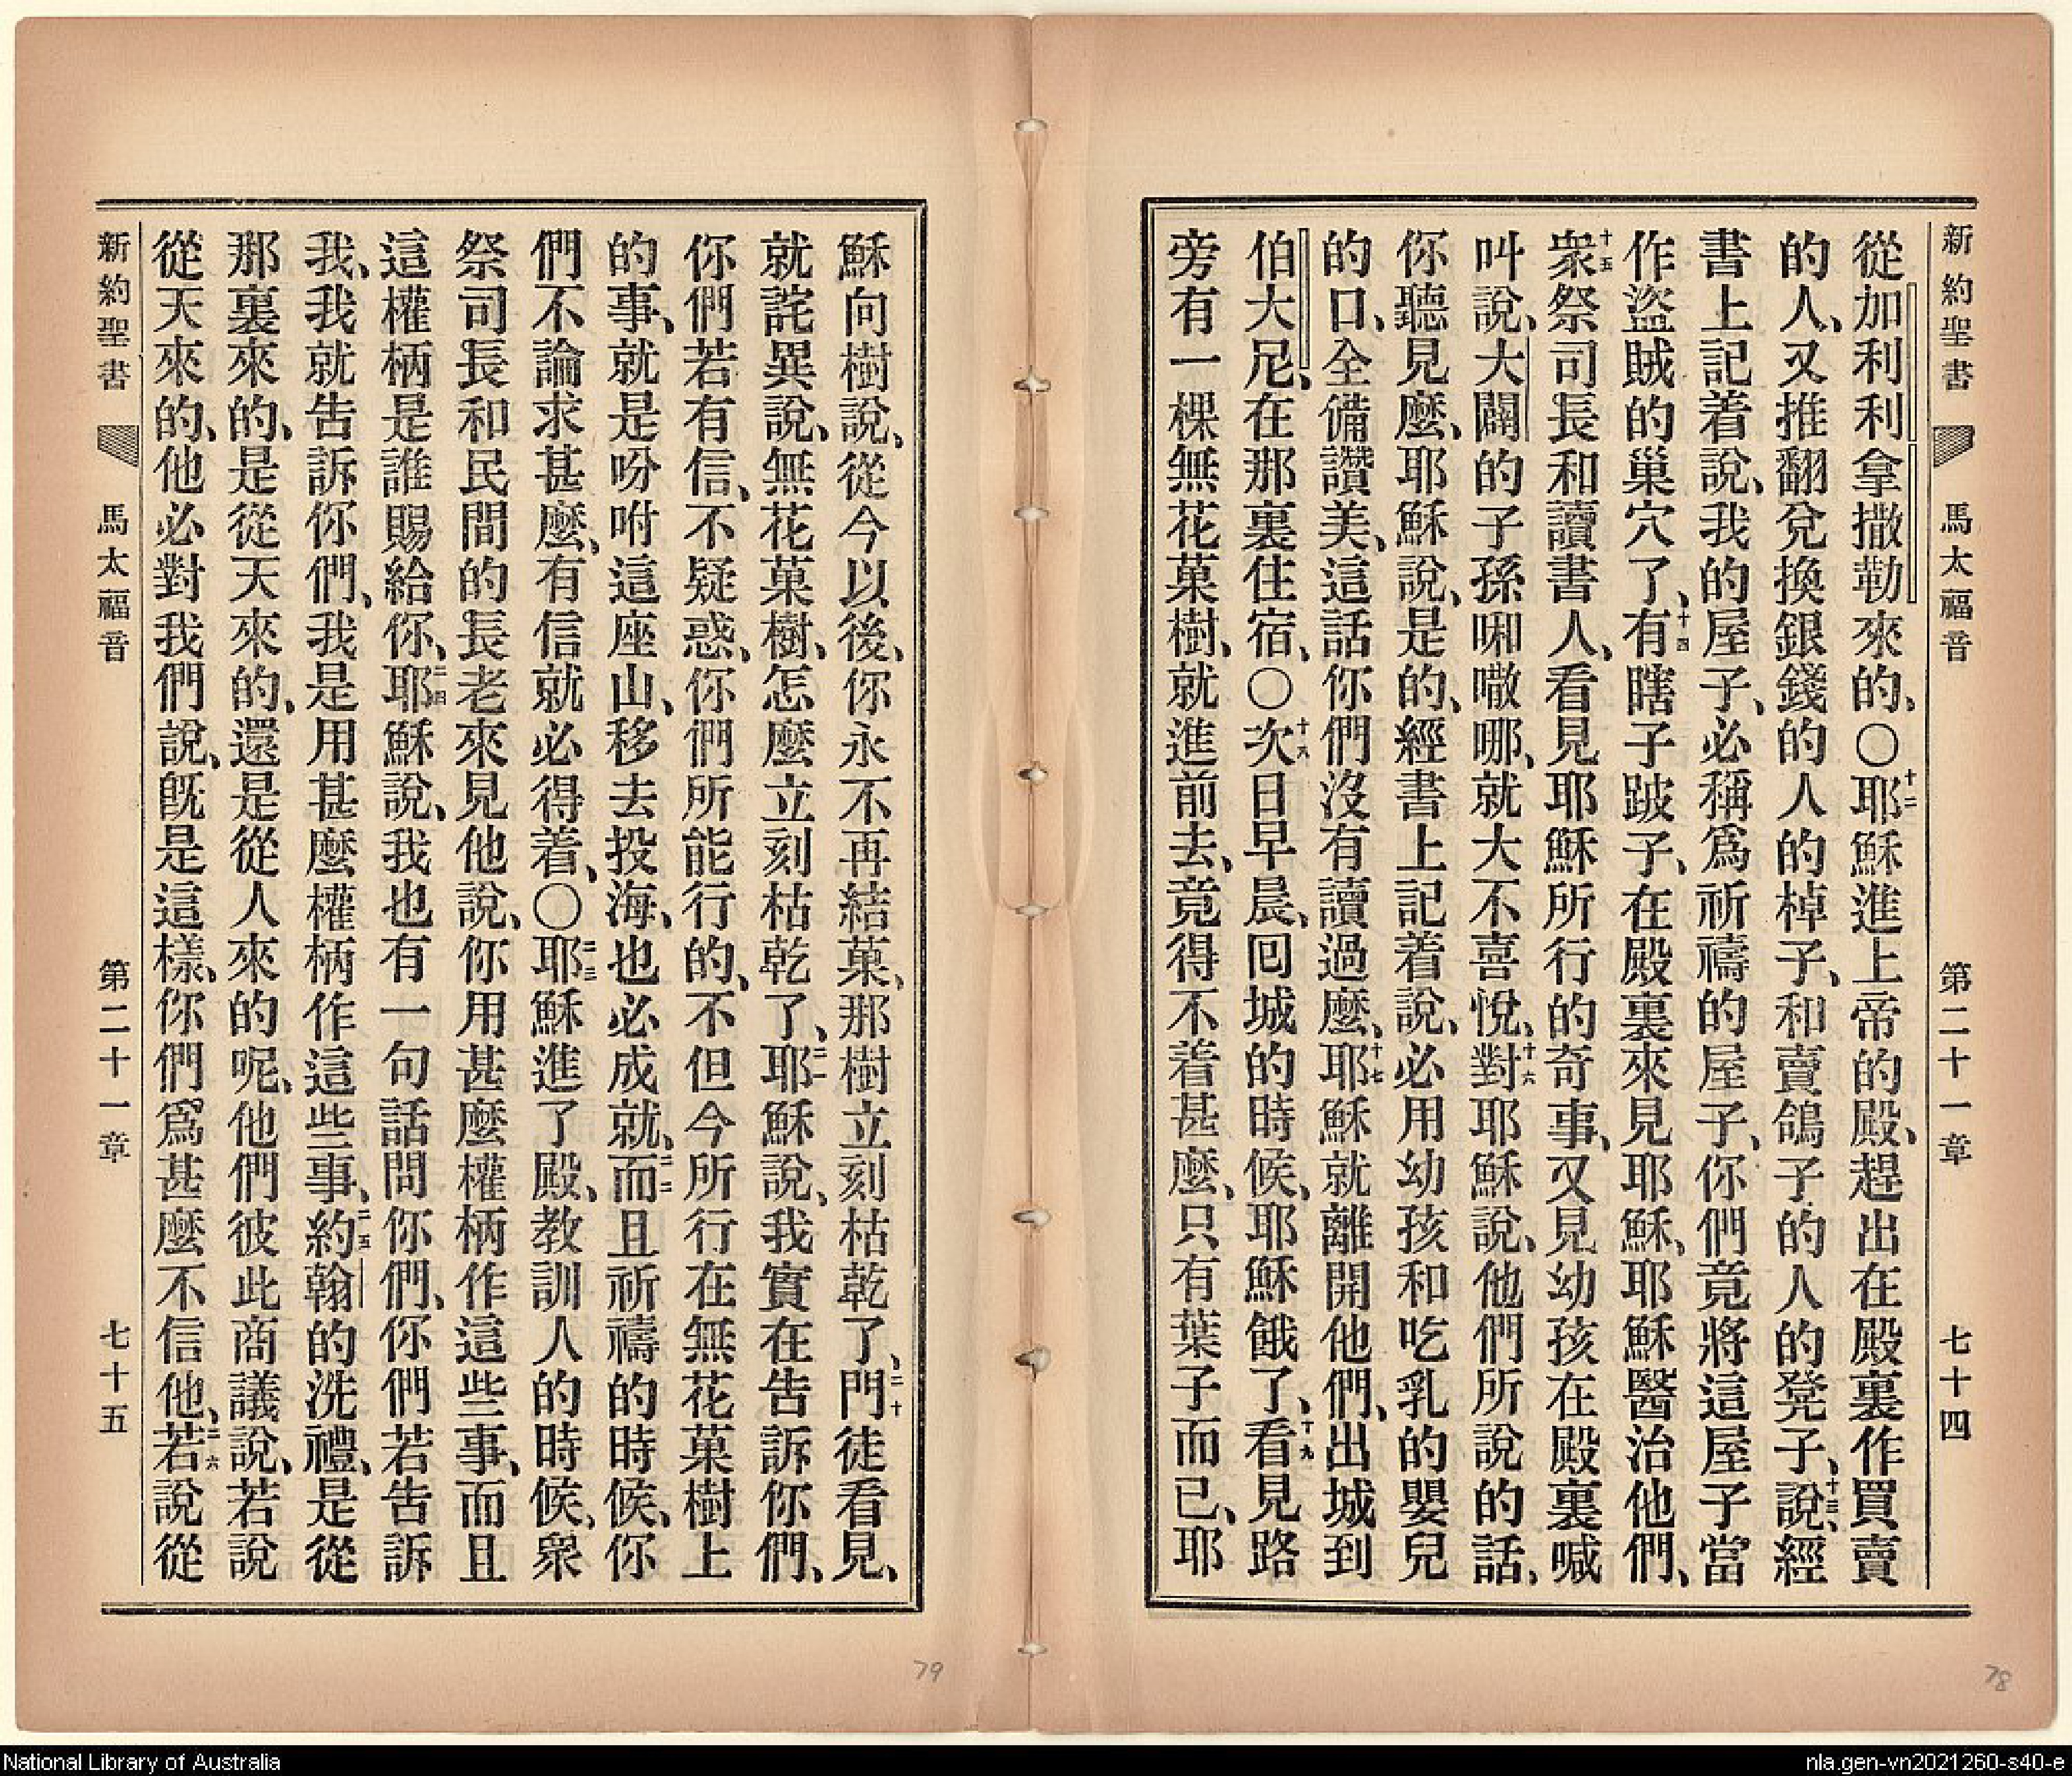 新約聖書 馬太福音 第二十一章 七十四
從加利利拿撒勒來的、〇十二耶穌進上帝的殿、趕出在殿裏作買賣
的人、又推翻兌換銀錢的人的棹子、和賣鴿子的人的凳子、十三說、經
書上記着說、我的屋子、必稱爲祈禱的屋子、你們竟將這屋子當
作盜賊的巢穴了、十四有瞎子跛子、在殿裏來見耶穌、耶穌醫治他們、
十五衆祭司長和讀書人、看見耶穌所行的奇事、又見幼孩在殿裏喊
叫說、大闢的子孫啝㗐哪、就大不喜悅、十六對耶穌說、他們所說的話、
你聽見麽、耶穌說、是的、經書上記着說、必用幼孩和吃乳的嬰兒
的口、全備讚美、這話你們沒有讀過麽、十七耶穌就離開他們、出城到
伯大尼、在那裏住宿、〇十八次日早晨、囘城的時候、耶穌餓了、十九看見路
旁有一棵無花菓樹、就進前去、竟得不着甚麽、只有葉子而已、耶
穌向樹說、從今以後、你永不再結菓、那樹立刻枯乾了、二十門徒看見、
就詫異說、無花菓樹、怎麽立刻枯乾了、二一耶穌說、我實在告訴你們、
你們若有信、不疑惑、你們所能行的、不但今所行在無花菓樹上
的事、就是吩咐這座山、移去投海、也必成就、二二而且祈禱的時候、你
們不論求甚麽、有信就必得着、〇二三耶穌進了殿、教訓人的時候、衆
祭司長和民間的長老來見他說、你用甚麽權柄作這些事、而且
這權柄是誰賜給你、二四耶穌說、我也有一句話問你們、你們若告訴
我、我就告訴你們、我是用甚麽權柄作這些事、二五約翰的洗禮、是從
那裏來的、是從天來的、還是從人來的呢、他們彼此商議說、若說
從天來的、他必對我們說、旣是這樣、你們爲甚麽不信他、二六若說從
新約聖書 馬太福音 第二十一章 七十五
79
78
National Library of Australia
nla.gen-vn2021260-s40-e